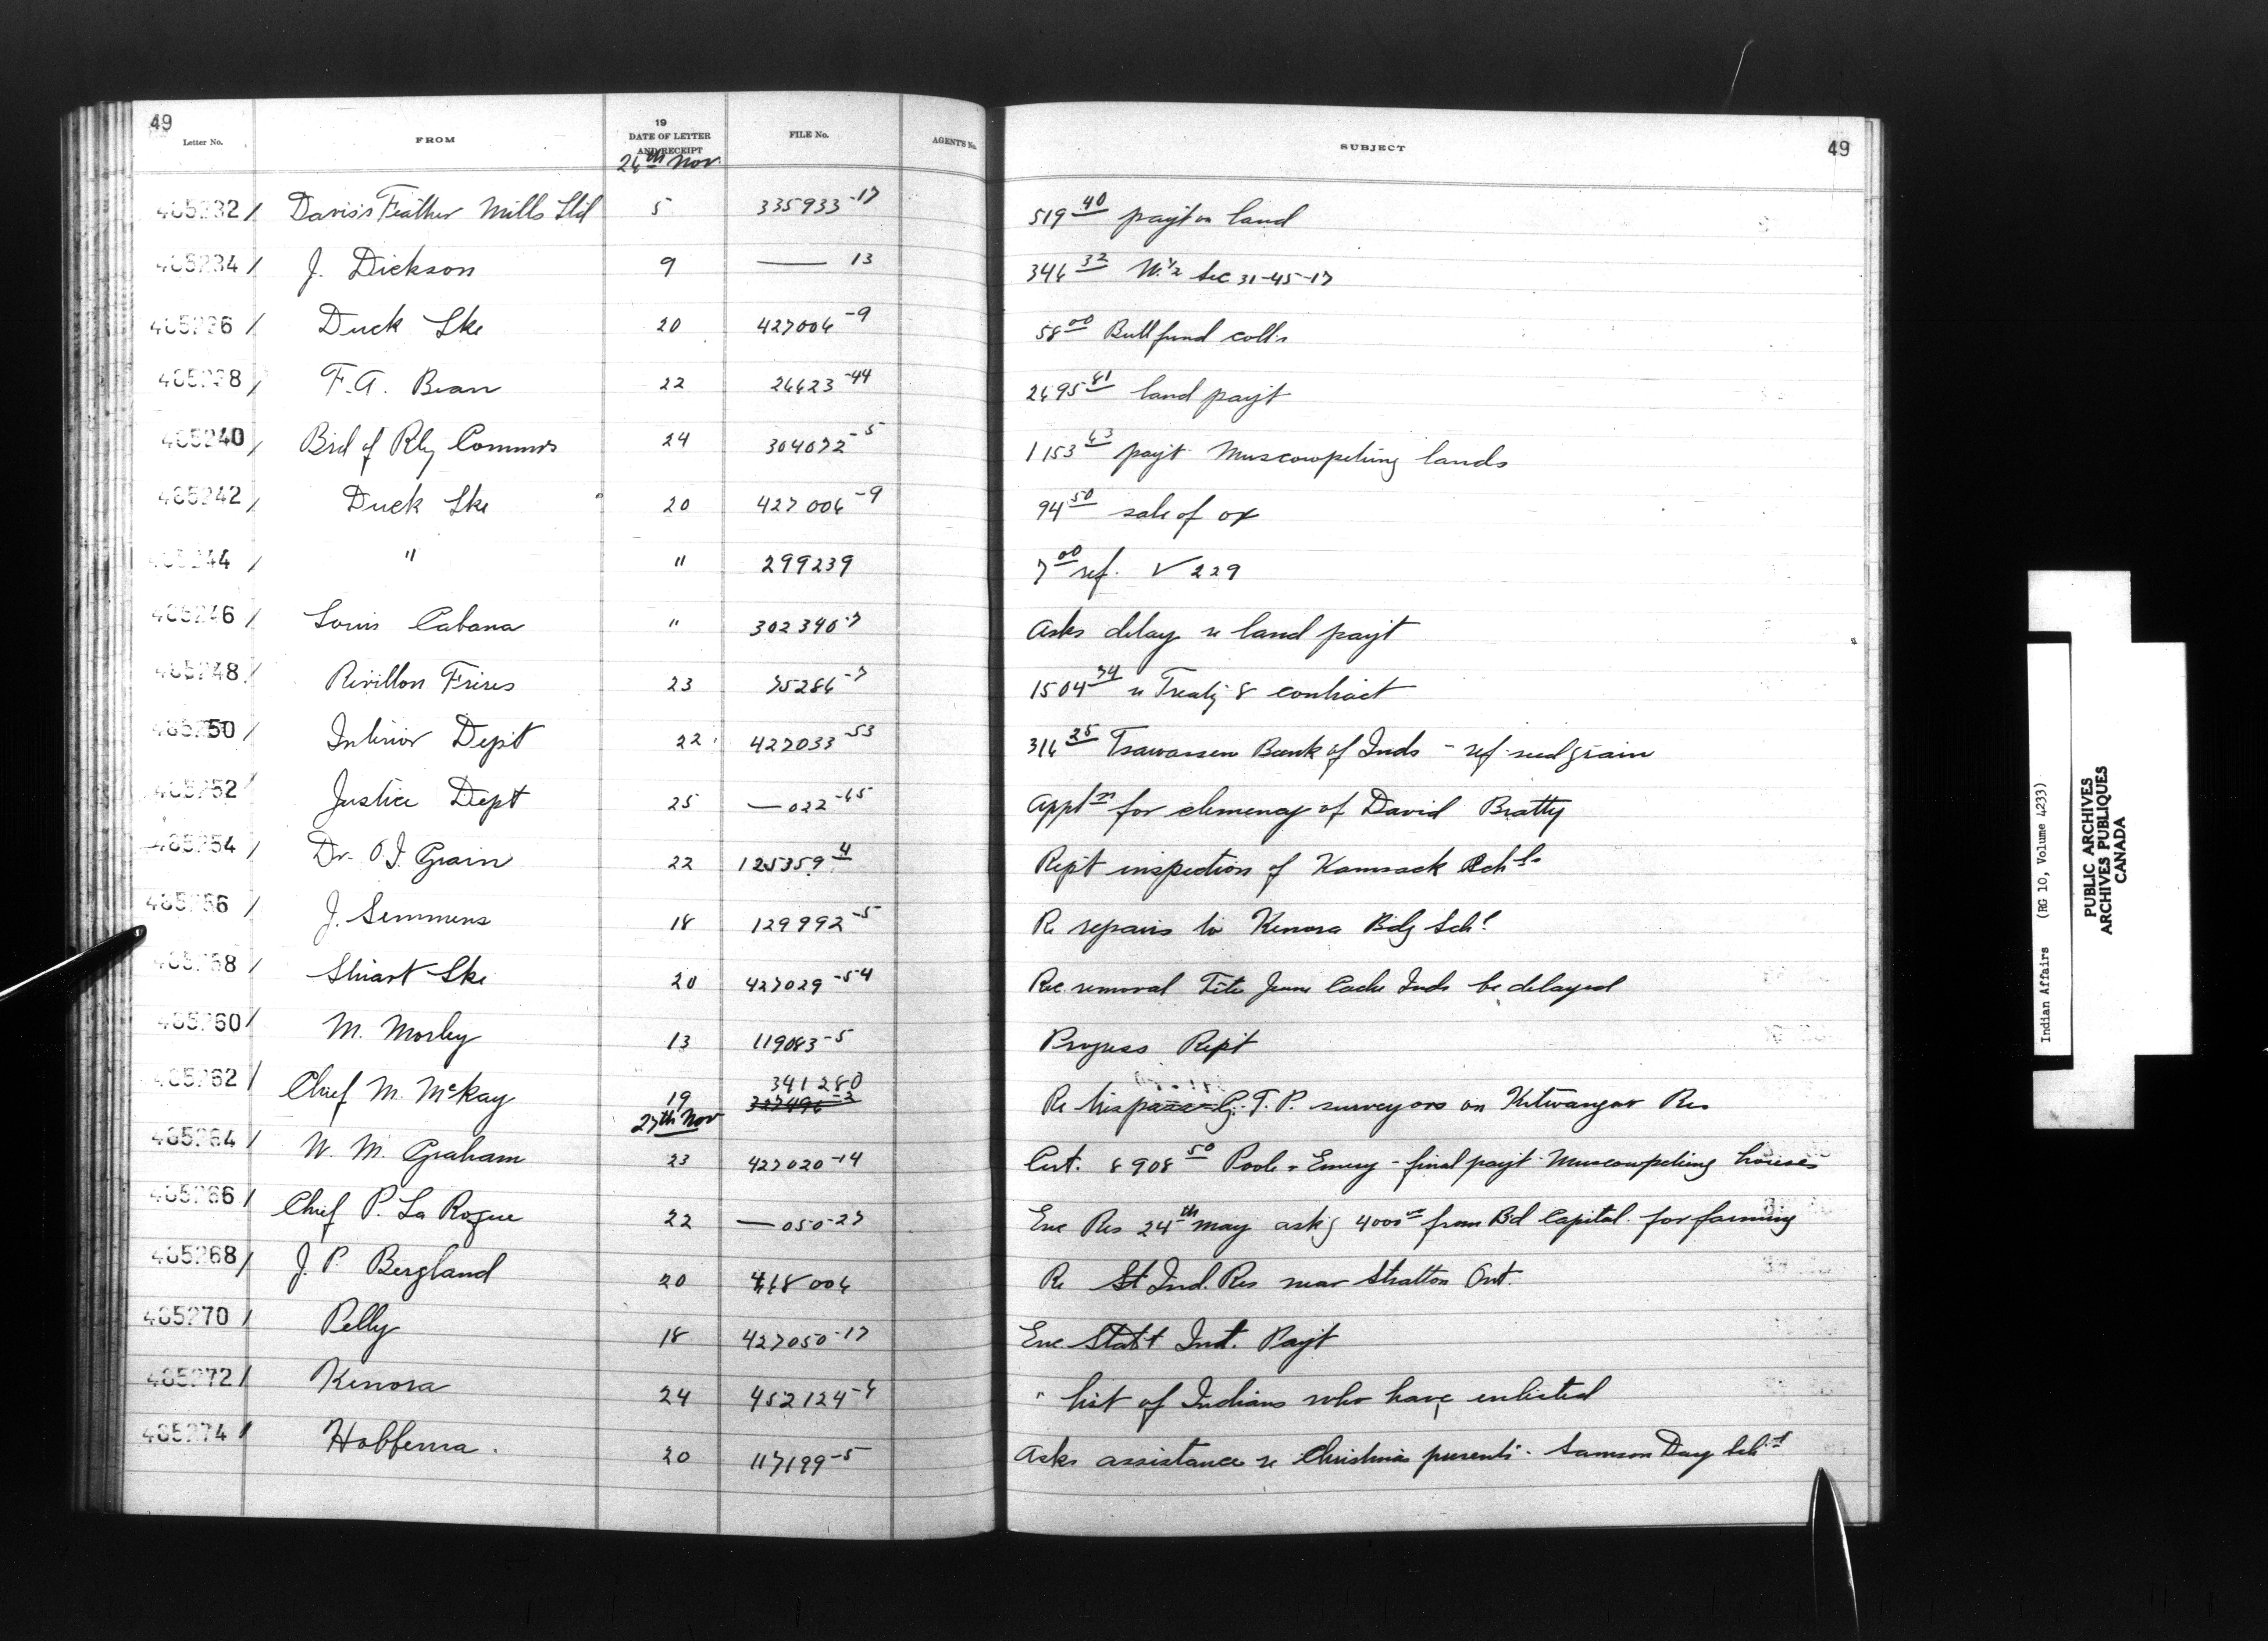 49
Letter No. FROM 19 DATE OF LETTER AND RECEIPT FILE No. AGENT'S No. SUBJECT 49
26th Nov.
465232/ Davis's Feather Mills Ltd 5 335933-17 519 40 payt on land
465234/ J. Dickson 9 — 13 346 32 W. 1/2 Sec 31-45-17
465236/ Duck Lke 20 427006-9 58 00 Bull fund coll.n
465238/ F.A. Bean 22 26623-44 2695 61 land payt
465240/ Brd of Rly Commrs 24 304072-5 1153 63 payt Muscowpetung lands
465242/ Duck Lke 20 427006-9 94 50 sale of ox
465244/ " " 299239 7 00 ref. V 229
465246/ Louis Cabana " 302340-7 Asks delay re land payt
465248/ Revillon Freres 23 75286-7 1504 74 re Treaty 8 contract
465250/ Interior Dept 22 427033-53 316 25 Tsawassen Bank of Inds - ref. seed grain
465252/ Justice Dept 25 — 022-65 Appln for clemency of David Beatty
465254/ Dr. O.I. Grain 22 125359 4 Rept inspection of Kamsack Schls
465256/ J. Semmens 18 129992-5 Re repairs to Kenora Bdg Schl
465258/ Stuart Lke 20 427029-54 Rec. removal Tête Jaune Cache Inds be delayed
465260/ M. Morley 13 119083-5 Progress Rept
465262/ Chief M. McKay 19 341280 327496-2 Re trespass G.T.P. surveyors on Kitwangar Res
27th Nov
465264/ W. M. Graham 23 427020-14 Cert. 8908 50 Poole & Emery - final payt Muscowpetung houses
465266/ Chief P. La Roque 22 — 050-27 Enc Res 24th May askg 4000 00 from Bd Capital for farming
465268/ J. P. Bergland 20 468006 Re St Ind. Res near Stratton Ont.
465270/ Pelly 18 427050-17 Enc. Statt Int. Payt
465272/ Kenora 24 452124-6 " list of Indians who have enlisted
465274/ Hobbema. 20 117199-5 Asks assistance re Christmas presents - Samson Day Schl
Indian Affairs (RG 10, Volume 4233)
PUBLIC ARCHIVES
ARCHIVES PUBLIQUES
CANADA